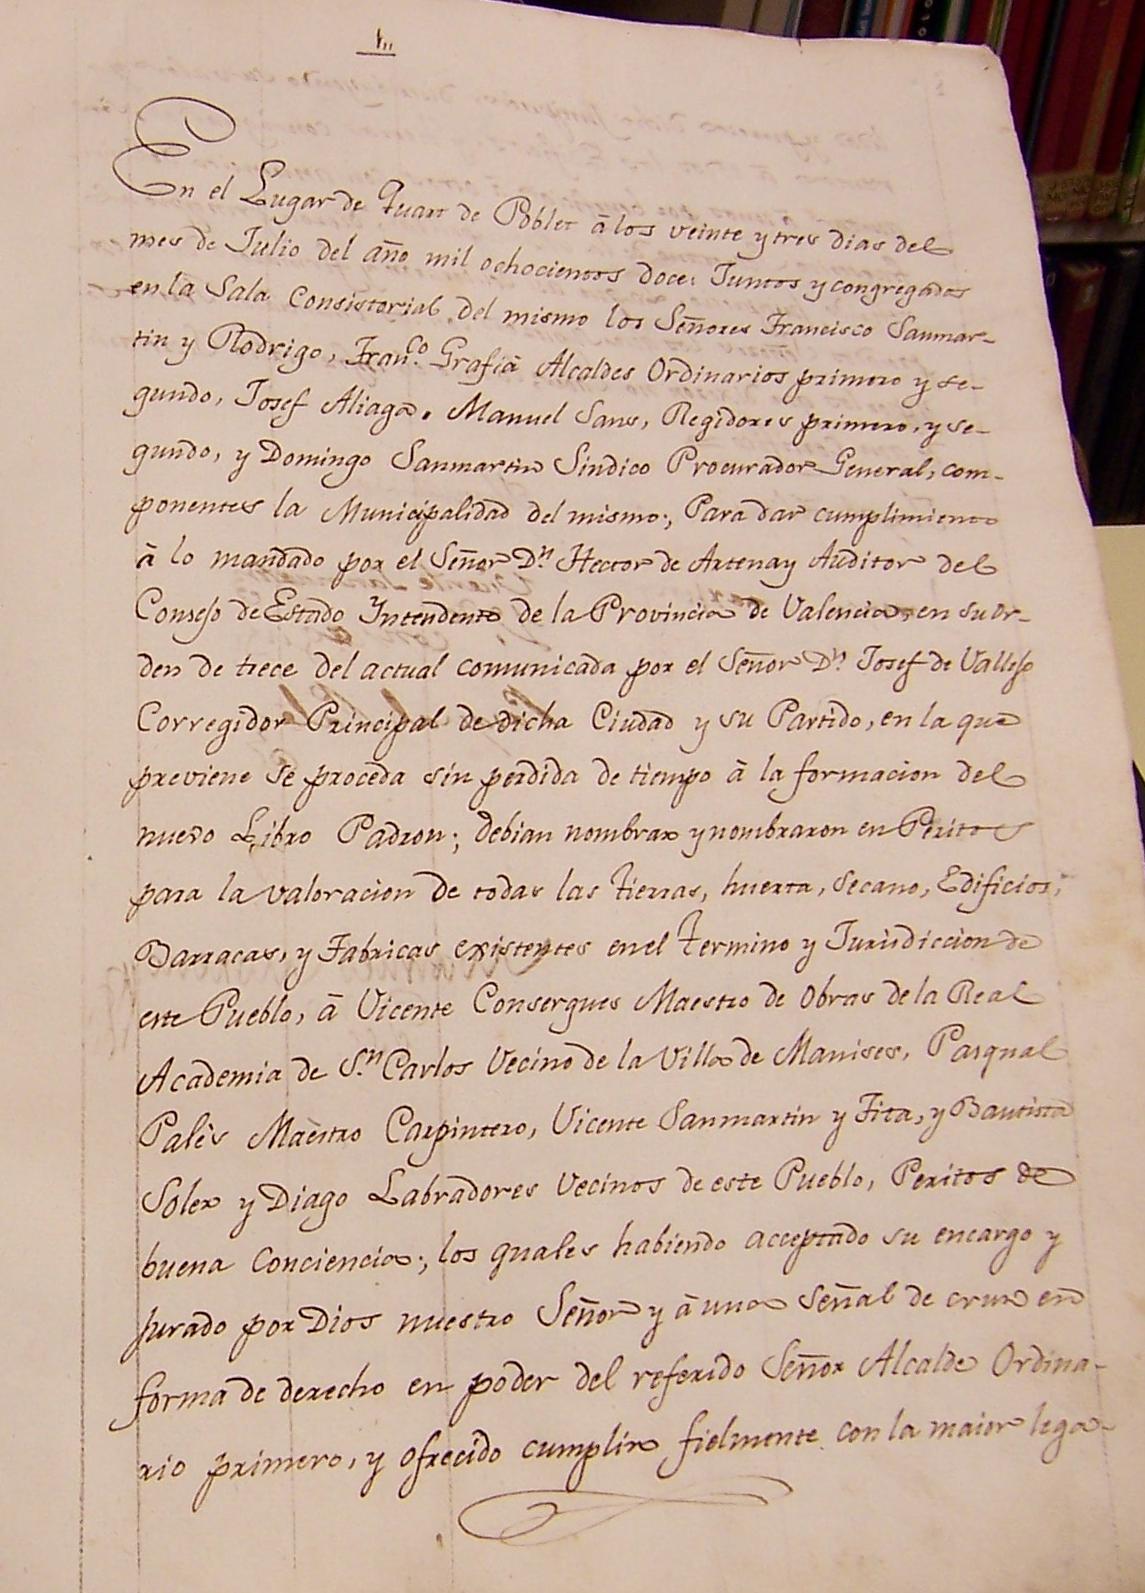 En el Lugar de Quart de Poblet à los veinte y tres dias del
mes de Julio del año mil ochocientos doce: Juntos y congregados
en la Sala Consistorial del mismo los Señores Francisco Sanmar-
tin y Rodrigo, Fran.co Grafiá Alcaldes Ordinarios primero y se-
gundo, Josef Aliaga, Manuel Sans, Regidores primero, y se-
gundo, y Domingo Sanmartin Sindico Procurador General, com-
ponentes la Municipalidad del mismo; Para dar cumplimiento
à lo mandado por el Señor D.n Hector de Artenay Auditor del
Consejo de Estado Yntendente de la Provincia de Valencia, en su or-
den de trece del actual comunicada por el Señor D.n Josef de Vallejo
Corregidor Principal de dicha Ciudad y su Partido, en la que
previene se proceda sin perdida de tiempo à la formacion del
nuevo Libro Padron; debian nombrar y nombraron en Peritos
para la valoracion de todas las tierras, huerta, secano, Edificios,
Barracas, y Fabricas existentes en el termino y Jurisdiccion de
este Pueblo, à Vicente Consergues Maestro de Obras de la Real
Academia de S.n Carlos Vecino de la Villa de Manises, Pasqual
Palés Maestro Carpintero, Vicente Sanmartin y Fita, y Bautista
Soler y Diago Labradores Vecinos de este Pueblo, Peritos de
buena Conciencia; los quales habiendo acceptado su encargo y
jurado por Dios nuestro Señor y à una señal de cruz en
forma de derecho en poder del referido Señor Alcalde Ordina-
rio primero, y ofrecido cumplir fielmente con la maior lega-